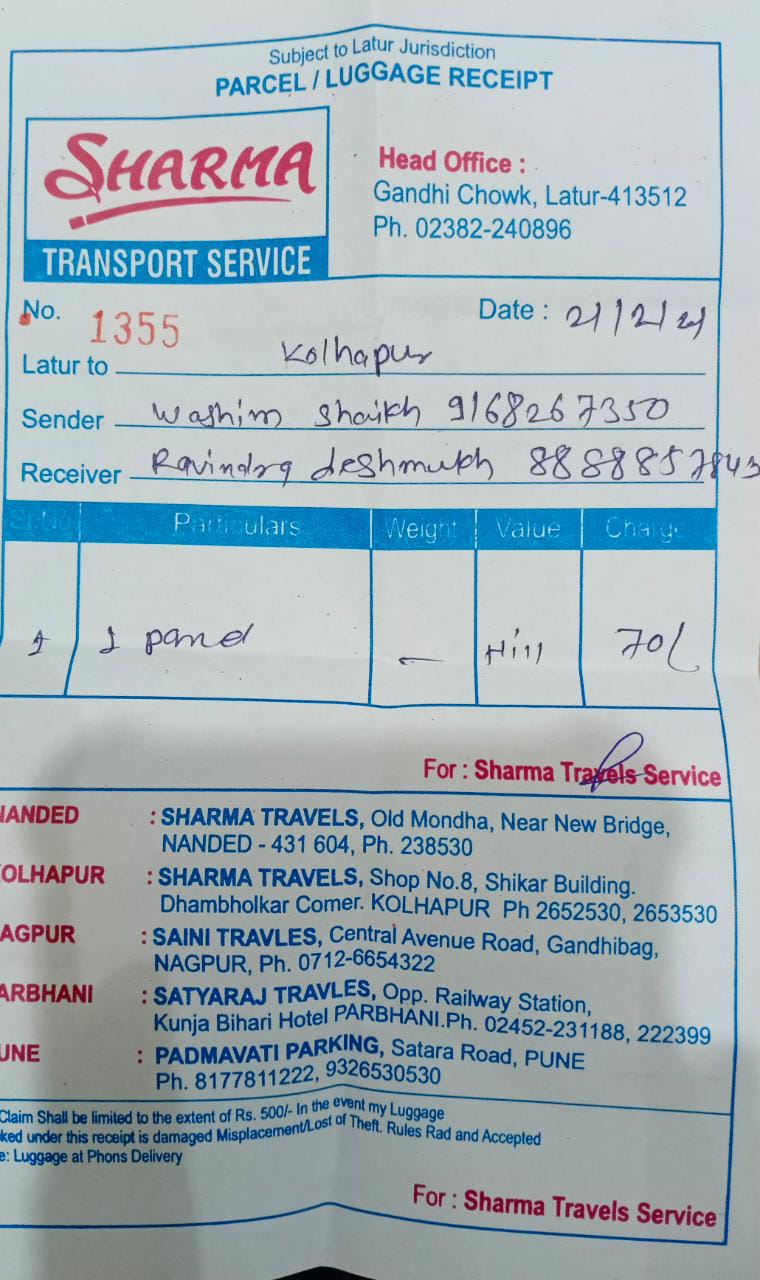 Subject to Latur Jurisdiction
PARCEL / LUGGAGE RECEIPT
SHARMA
TRANSPORT SERVICE
Head Office :
Gandhi Chowk, Latur-413512
Ph. 02382-240896
No. 1355
Date : 21/2/21
Latur to Kolhapur
Sender Washim Shaikh 9168267350
Receiver Ravindra deshmukh 8888857843
Sr.No. Particulars Weight Value Charge
1 1 - 70/
For : Sharma Travels Service
NANDED : SHARMA TRAVELS, Old Mondha, Near New Bridge,
NANDED - 431 604, Ph. 238530
OLHAPUR : SHARMA TRAVELS, Shop No.8, Shikar Building.
Dhambholkar Comer. KOLHAPUR Ph 2652530, 2653530
AGPUR : SAINI TRAVLES, Central Avenue Road, Gandhibag,
NAGPUR, Ph. 0712-6654322
ARBHANI : SATYARAJ TRAVLES, Opp. Railway Station,
Kunja Bihari Hotel PARBHANI.Ph. 02452-231188, 222399
UNE : PADMAVATI PARKING, Satara Road, PUNE
Ph. 8177811222, 9326530530
Claim Shall be limited to the extent of Rs. 500/- In the event my Luggage
ked under this receipt is damaged Misplacement/Lost of Theft. Rules Rad and Accepted
e: Luggage at Phons Delivery
For : Sharma Travels Service